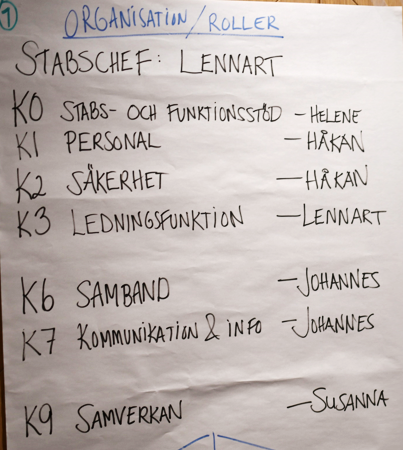 1
ORGANISATION/ROLLER
STABSCHEF: LENNART
K0 STABS- OCH FUNKTIONSSTÖD - HELENE
K1 PERSONAL - HÅKAN
K2 SÄKERHET - HÅKAN
K3 LEDNINGSFUNKTION - LENNART
K6 SAMBAND - JOHANNES
K7 KOMMUNIKATION & INFO - JOHANNES
K9 SAMVERKAN - SUSANNA